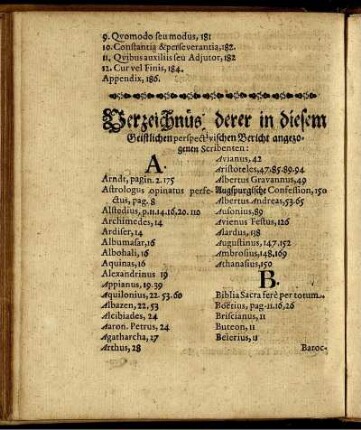 9. Qvomodo seu modus, 181
10. Constantia & perseverantia, 182.
11. Qvibus auxiliis seu Adjutor, 182
12. Cur vel Finis, 184.
Appendix, 186.
Verzeichnüs derer in diesem
Geistlichen perspectivischen Bericht angezo-
genen Scribenten:
A.
Arndt, pagin. 2. 175
Astrologus opinatus perfe-
ctus, pag. 8
Alstedius, p. 11. 14. 16, 20. 110
Archimedes, 14
Ardiser, 14
Albumasar, 16
Albohali, 16
Aquinas, 16
Alexandrinus 19
Appianus, 19. 39
Aquilonius, 22. 53. 60
Albazen, 22, 53
Alcibiades, 24
Aaron. Petrus, 24
Agatharcha, 27
Arthus, 28
Avianus, 42
Aristoteles, 47. 85. 89. 94
Albertus Gravannus, 49
Augspurgische Confession, 150
Albertus Andreas, 53. 65
Ausonius, 89
Avienus Festus, 126
Alardus, 138
Augustinus, 147, 152
Ambrosius, 148, 169
Athanasius, 150
B.
Biblia Sacra ferè per totum.
Boëtius, pag. 11. 16, 26
Briscianus, 11
Buteon, 11
Beierius, 11
Baroc-